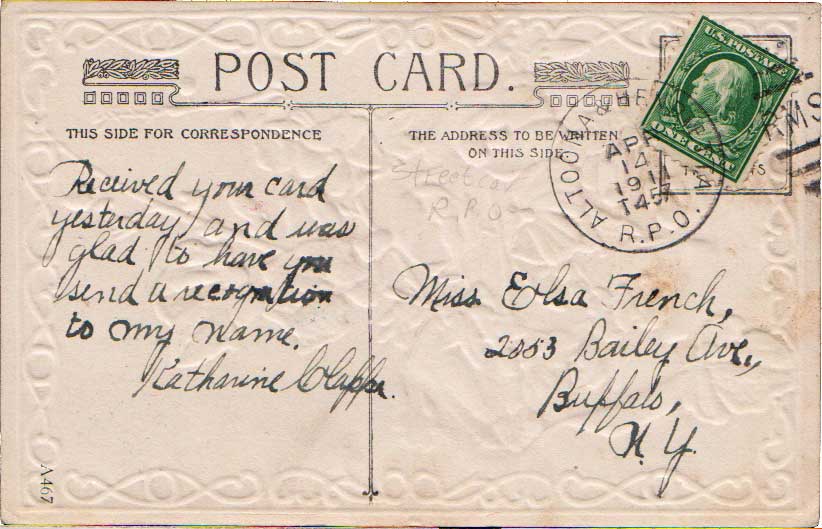 POST CARD.
THIS SIDE FOR CORRESPONDENCE
THE ADDRESS TO BE WRITTEN
ON THIS SIDE
U.S. POSTAGE
ONE CENT
ALTOONA & HEN
PA
APR
14
1911
T457
R.P.O.
RMS
Streetcar
R.P.O
Received your card
yesterday and was
glad to have you
send a recognition
to my name.
Katharine Clapper.
Miss Elsa French,
2053 Bailey Ave.,
Buffalo,
N.Y.
A467